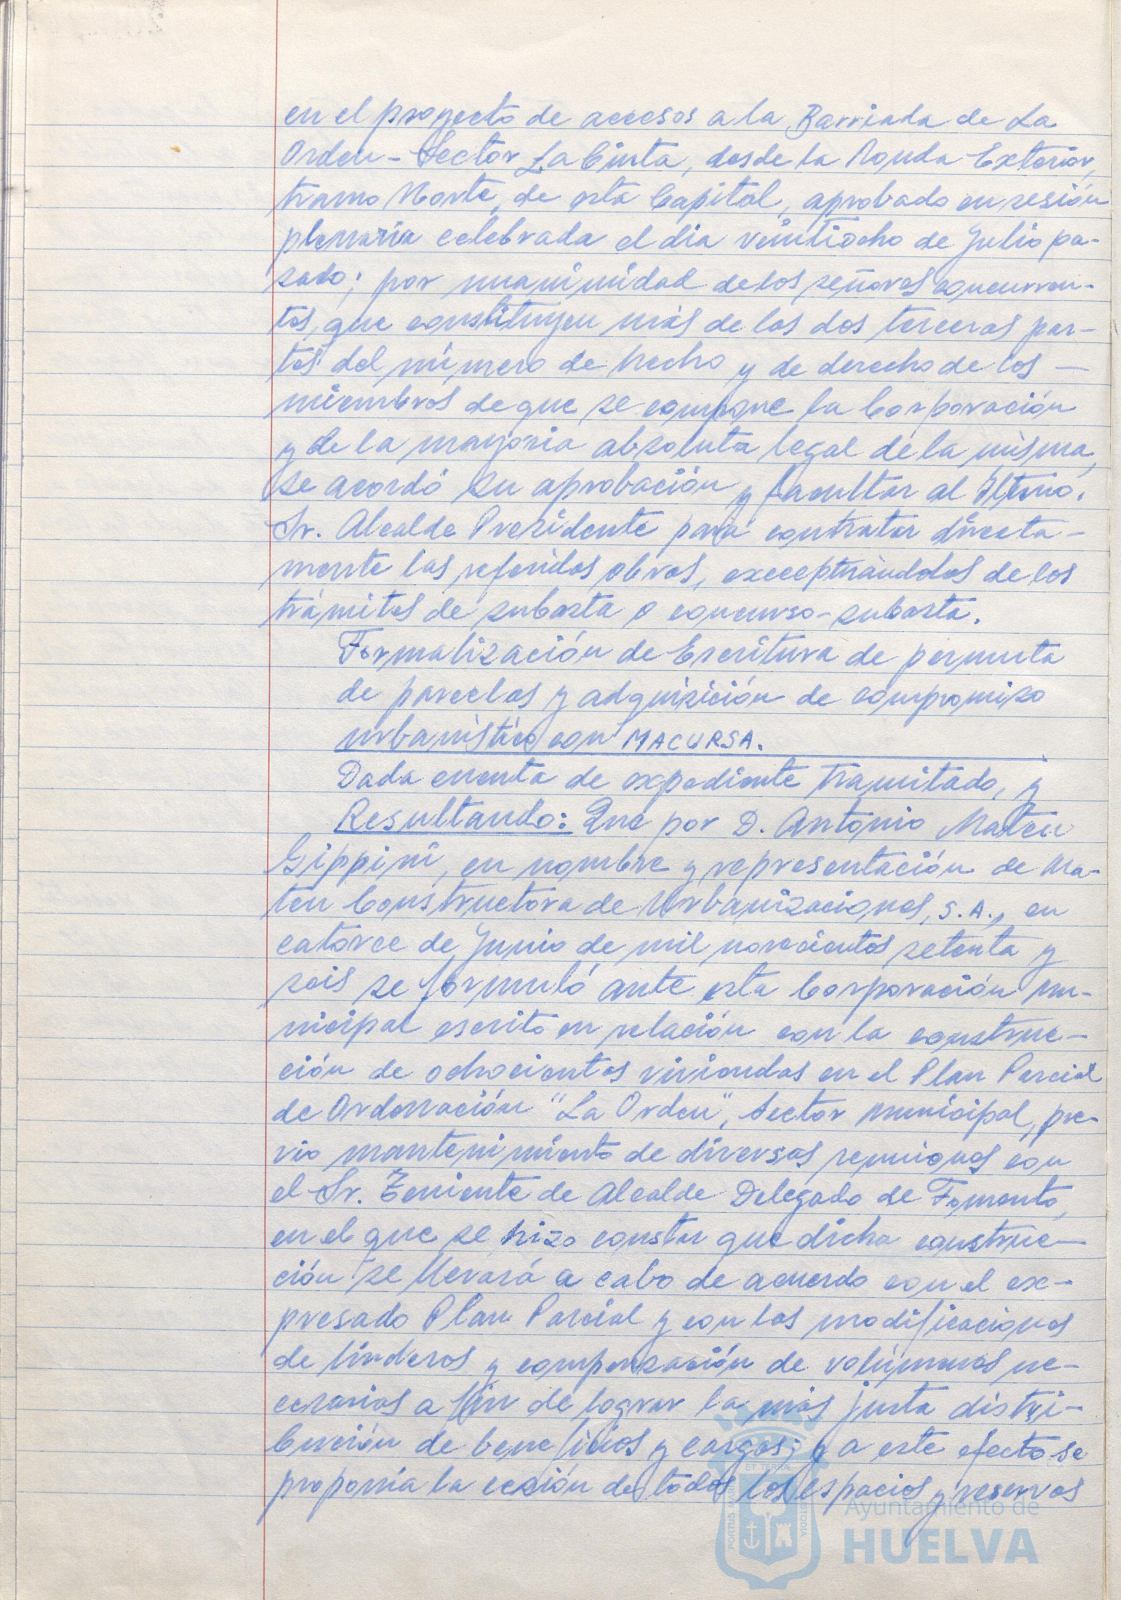 en el proyecto de accesos a la Barriada de La
Orden - Sector La Cinta, desde la Ronda Exterior,
tramo Norte, de esta Capital, aprobado en sesión
plenaria celebrada el dia veintiocho de Julio pa-
sado; por unanimidad de los señores concurren-
tes, que constituyen más de las dos terceras par-
tes del número de hecho y de derecho de los —
miembros de que se compone la Corporación
y de la mayoria absoluta legal de la misma,
se acordó su aprobación y facultar al Iltmo.
Sr. Alcalde Presidente para contratar directa-
mente las referidas obras, exceptuándolas de los
trámites de subasta o concurso-subasta.
Formalización de Escritura de permuta
de parcelas y adquisición de compromiso
urbanístico con MACURSA.
Dada cuenta de expediente tramitado, y
Resultando: Que por D. Antonio Mateu
Gippini, en nombre y representación de Ma-
teu Constructora de Urbanizaciones, S.A., en
catorce de Junio de mil novecientos setenta y
seis se formuló ante esta Corporación mu-
nicipal escrito en relación con la construc-
ción de ochocientas viviendas en el Plan Parcial
de Ordenación "La Orden", Sector Municipal, pre-
vio mantenimiento de diversas reuniones con
el Sr. Teniente de Alcalde Delegado de Fomento,
en el que se hizo constar que dicha construc-
ción se llevará a cabo de acuerdo con el ex-
presado Plan Parcial y con las modificaciones
de linderos y compensación de volúmenes ne-
cesarias a fin de lograr la más justa distri-
bución de beneficios y cargas; y a este efecto se
proponía la cesión de todos los espacios y reservas
Ayuntamiento de
HUELVA